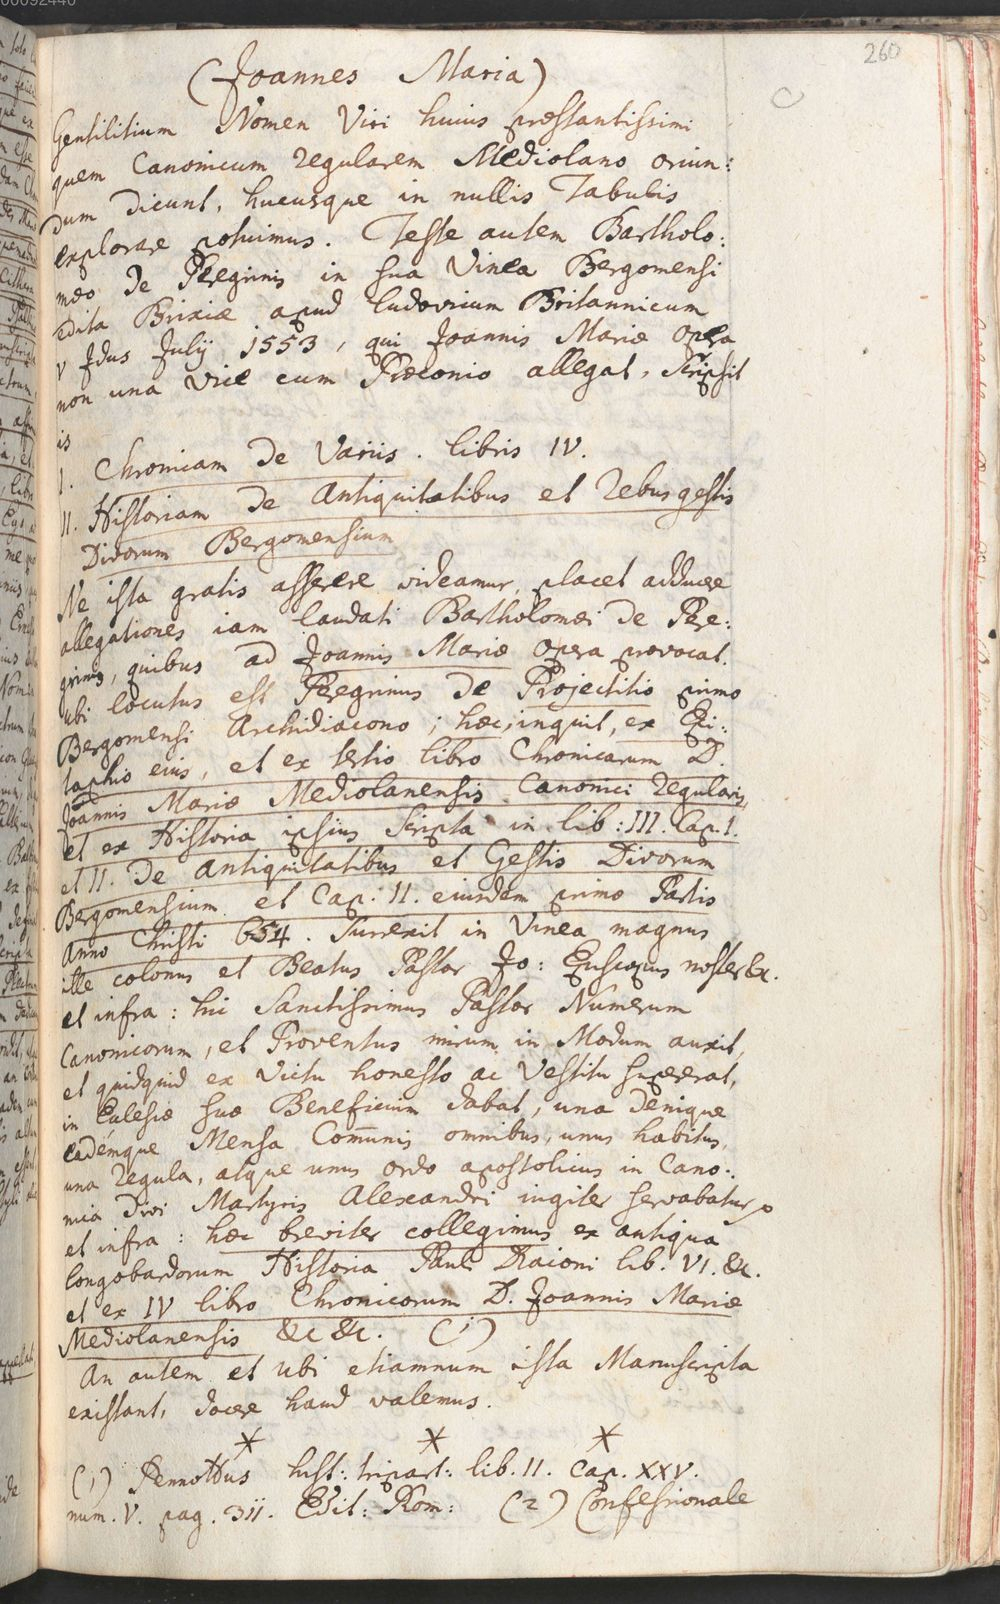 00092440
260
(Joannes Maria)
Gentilitium Nomen Viri huius præstantissimi
quem Canonicum regularem Mediolano oriun:
dum dicunt, hucusque in nullis Tabulis
explorare potuimus. Teste autem Bartholo:
mæo de Peregrinis in sua Vinea Bergomensi
edita Brixiæ apud ludovicum Britannicum
V Idus Julij 1553, qui Joannis Mariæ opera
non una vice cum Præconio allegat, Scripsit
is
I. Chronicam de Variis. libris IV.
II. Historiam de Antiquitatibus et rebus gestis
Divorum Bergomensium
Ne ista gratis asserere videamur, placet adducere
allegationes iam laudati Bartholomæi de Pere:
grinis, quibus ad Joannis Mariæ opera provocat.
ubi locutus est Peregrinus de Projectitio primo
Bergomensi Archidiacono; hæc, inquit, ex Epi:
taphio eius, et ex tertio libro Chronicarum D.
Joannis Mariæ Mediolanensis Canonici regularis,
et ex Historia ipsius scripta in lib: III. Cap. I.
et II. de Antiquitatibus et Gestis Divorum
Bergomensium. et Cap. II. eiusdem primæ Partis
Anno Christi 654. Surrexit in Vinea magnus
ille colonus et Beatus Pastor Jo: Episcopus noster &c.
et infra: hic Sanctissimus Pastor Numerum
Canonicorum, et Proventus mirum in Modum auxit,
et quidquid ex Victu honesto ac Vestitu supererat,
in Ecclesiæ suæ Beneficium dabat, una denique
eademque Mensa Com̄unis omnibus, unus habitus,
una regula, atque unus ordo apostolicus in Cano:
nia Divi Martyris Alexandri iugiter servabatur,
et infra: hæc breviter collegimus ex antiqua
longobardorum Historia Pauli Diaconi lib. VI. &c.
et ex IV libro Chronicorum D. Joannis Mariæ
Mediolanensis &c &c. (1)
An autem et ubi etiamnum ista Manuscripta
existant, docere haud valemus.
* * *
(1) Pennottus hist: tripart: lib. II. Cap. XXV.
num. V. pag. 311. Edit: Rom: (2) Confessionale